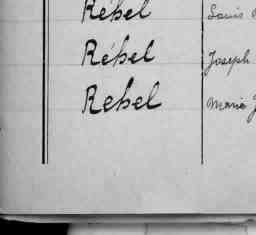 Rébel Louis
Rébel Joseph
Rebel Marie J